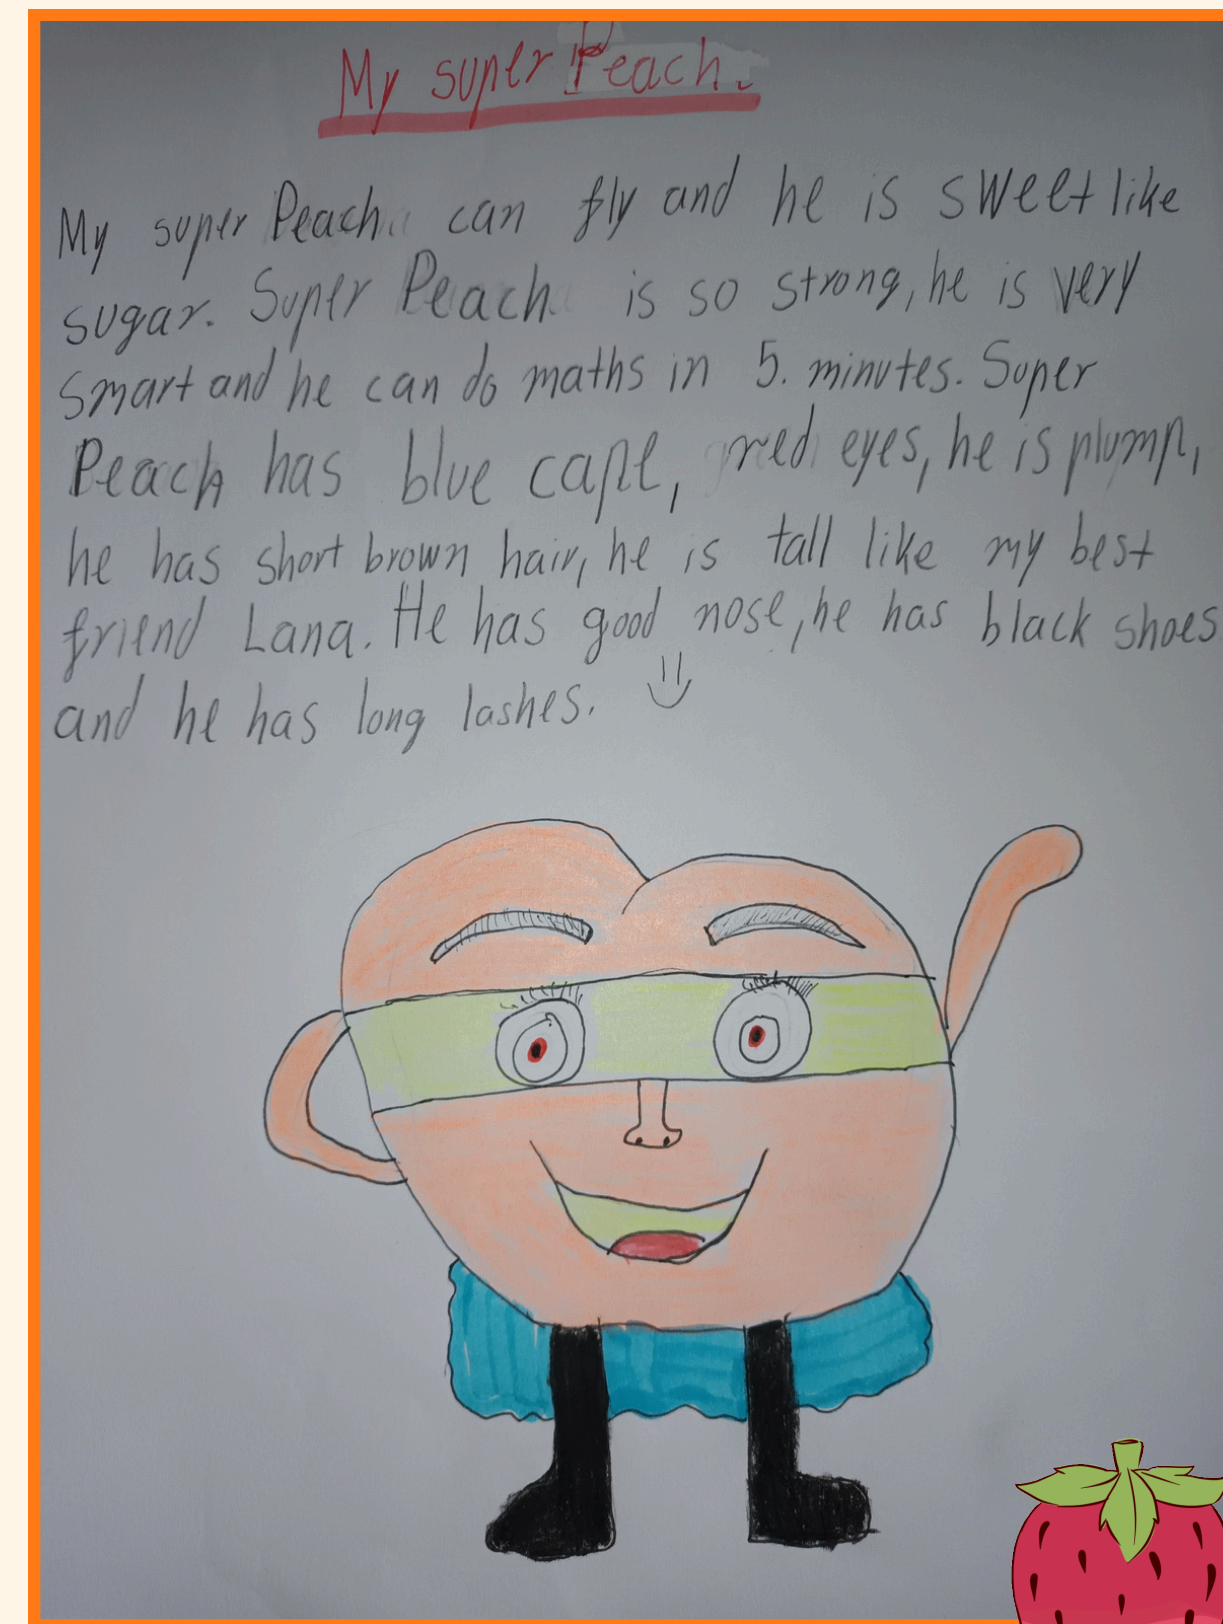 My super Peach.
My super Peach can fly and he is sweet like
sugar. Super Peach is so strong, he is very
smart and he can do maths in 5. minutes. Super
Peach has blue cape, red eyes, he is plump,
he has short brown hair, he is tall like my best
friend Lana. He has good nose, he has black shoes
and he has long lashes.